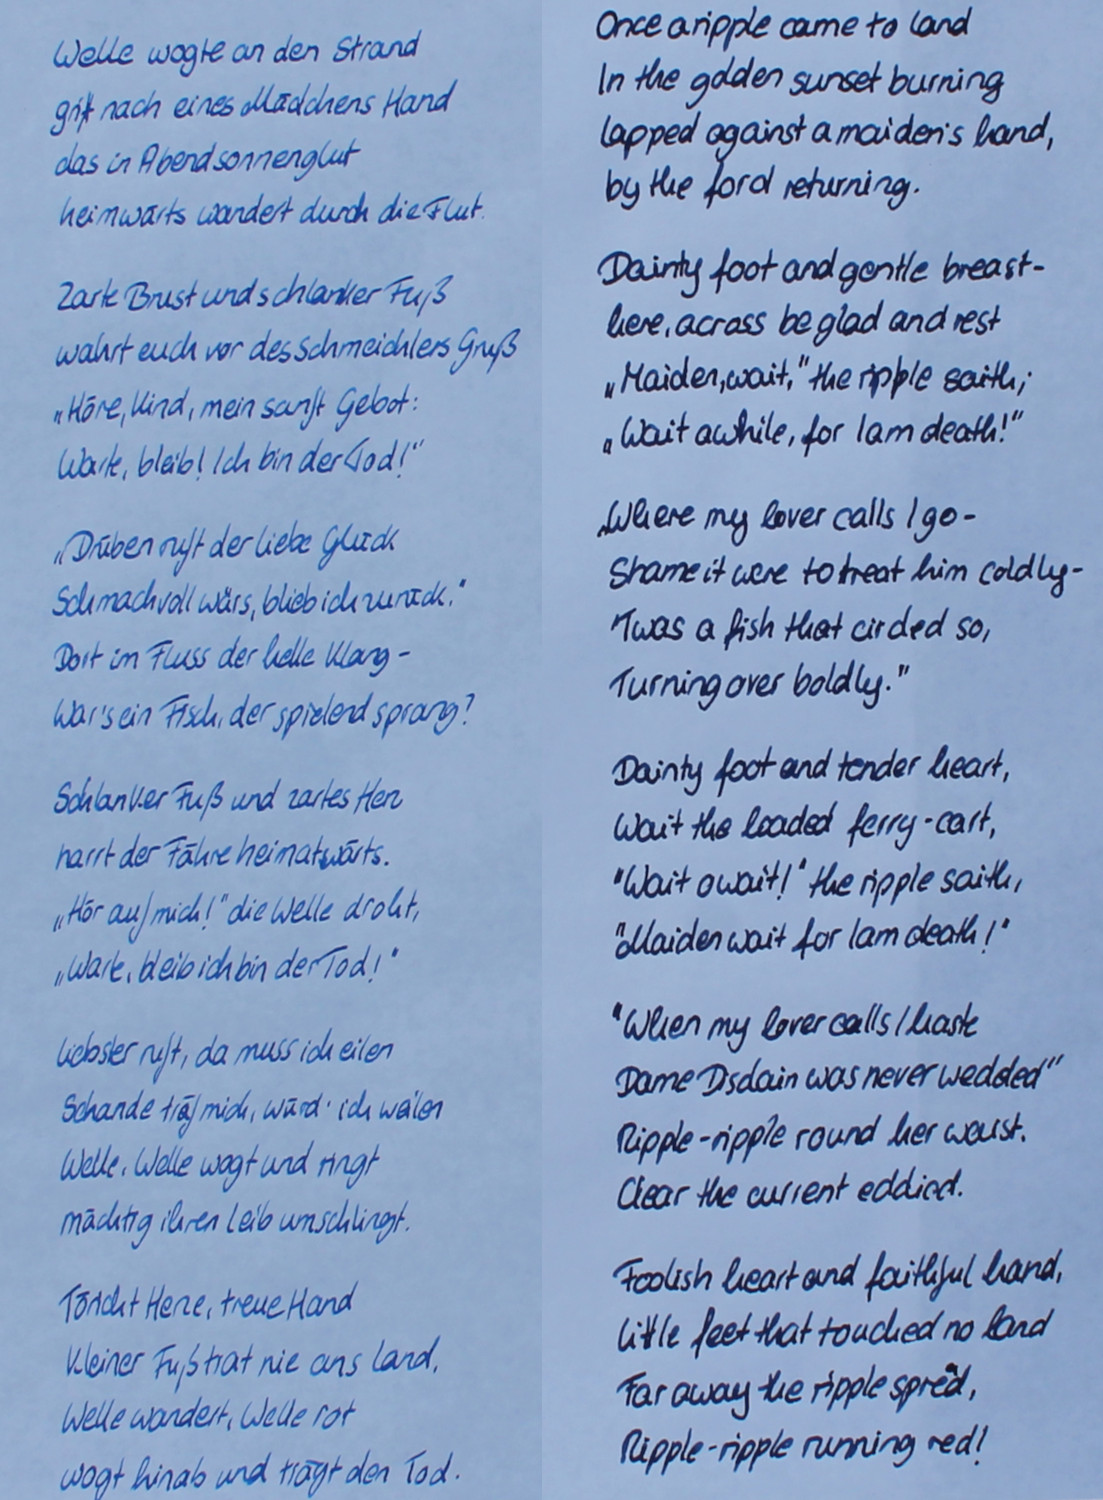 Welle wogte an den Strand
griff nach eines Mädchens Hand
das in Abendsonnenglut
heimwärts wandert durch die Flut.
Zarte Brust und schlanker Fuß
wahrt euch vor des Schmeichlers Gruß
„Höre, Kind, mein sanft Gebot:
Warte, bleib! Ich bin der Tod!“
„Drüben ruft der Liebe Glück
Schmachvoll wärs, blieb ich zurück."
Dort im Fluss der helle Klang -
War's ein Fisch, der spielend sprang?
Schlanker Fuß und zartes Herz
harrt der Fähre heimatwärts.
„Hör auf mich!" die Welle droht,
„Warte, bleib ich bin der Tod!"
Liebster ruft, da muss ich eilen
Schande träf mich, würd' ich weilen
Welle, Welle wogt und ringt
mächtig ihren Leib umschlingt.
Töricht Herze, treue Hand
Kleiner Fuß trat nie ans Land,
Welle wandert, Welle rot
wogt hinab und trägt den Tod.
Once a ripple came to land
In the golden sunset burning
lapped against a maiden's hand,
by the ford returning.
Dainty foot and gentle breast-
here, across be glad and rest
„Maiden, wait," the ripple saith;
„Wait awhile, for I am death!"
„Where my lover calls I go-
Shame it were to treat him coldly-
'Twas a fish that circled so,
Turning over boldly."
Dainty foot and tender heart,
Wait the loaded ferry-cart,
"Wait o wait!" the ripple saith,
"Maiden wait for I am death!"
"When my lover calls I haste
Dame Disdain was never wedded"
Ripple-ripple round her waist.
Clear the current eddied.
Foolish heart and faithful hand,
little feet that touched no land
Far away the ripple spred,
Ripple-ripple running red!